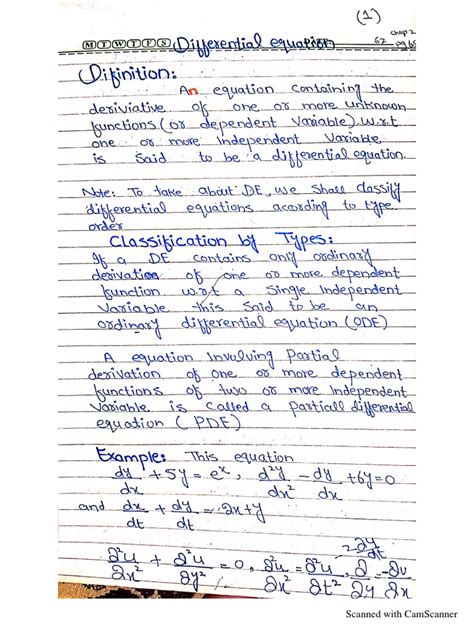 (1)
chap 2
M T W T F S Differential equation 67
Difinition:
An equation containing the
deriviative of one or more unknown
functions (or dependent Variable) w.r.t
one or more Independent Variable
is Said to be a differential equation.
Note: To take about DE, we Shall classify
differential equations according to type
order
Classification by Types:
If a DE contains only ordinary
derivation of one or more dependent
function w.r.t a Single Independent
Variable this Said to be an
ordinary differential equation (ODE)
A equation Involving Partial
derivation of one or more dependent
functions of two or more Independent
Variable is Called a partiall differential
equation ( PDE )
Example: This equation
dy/dx + 5y = e^x , d²y/dx² - dy/dx + 6y = 0
and dx/dt + dy/dt = 2x + y
∂²u/∂x² + ∂²u/∂y² = 0, ∂²u/∂x² = ∂²u/∂t²
Scanned with CamScanner